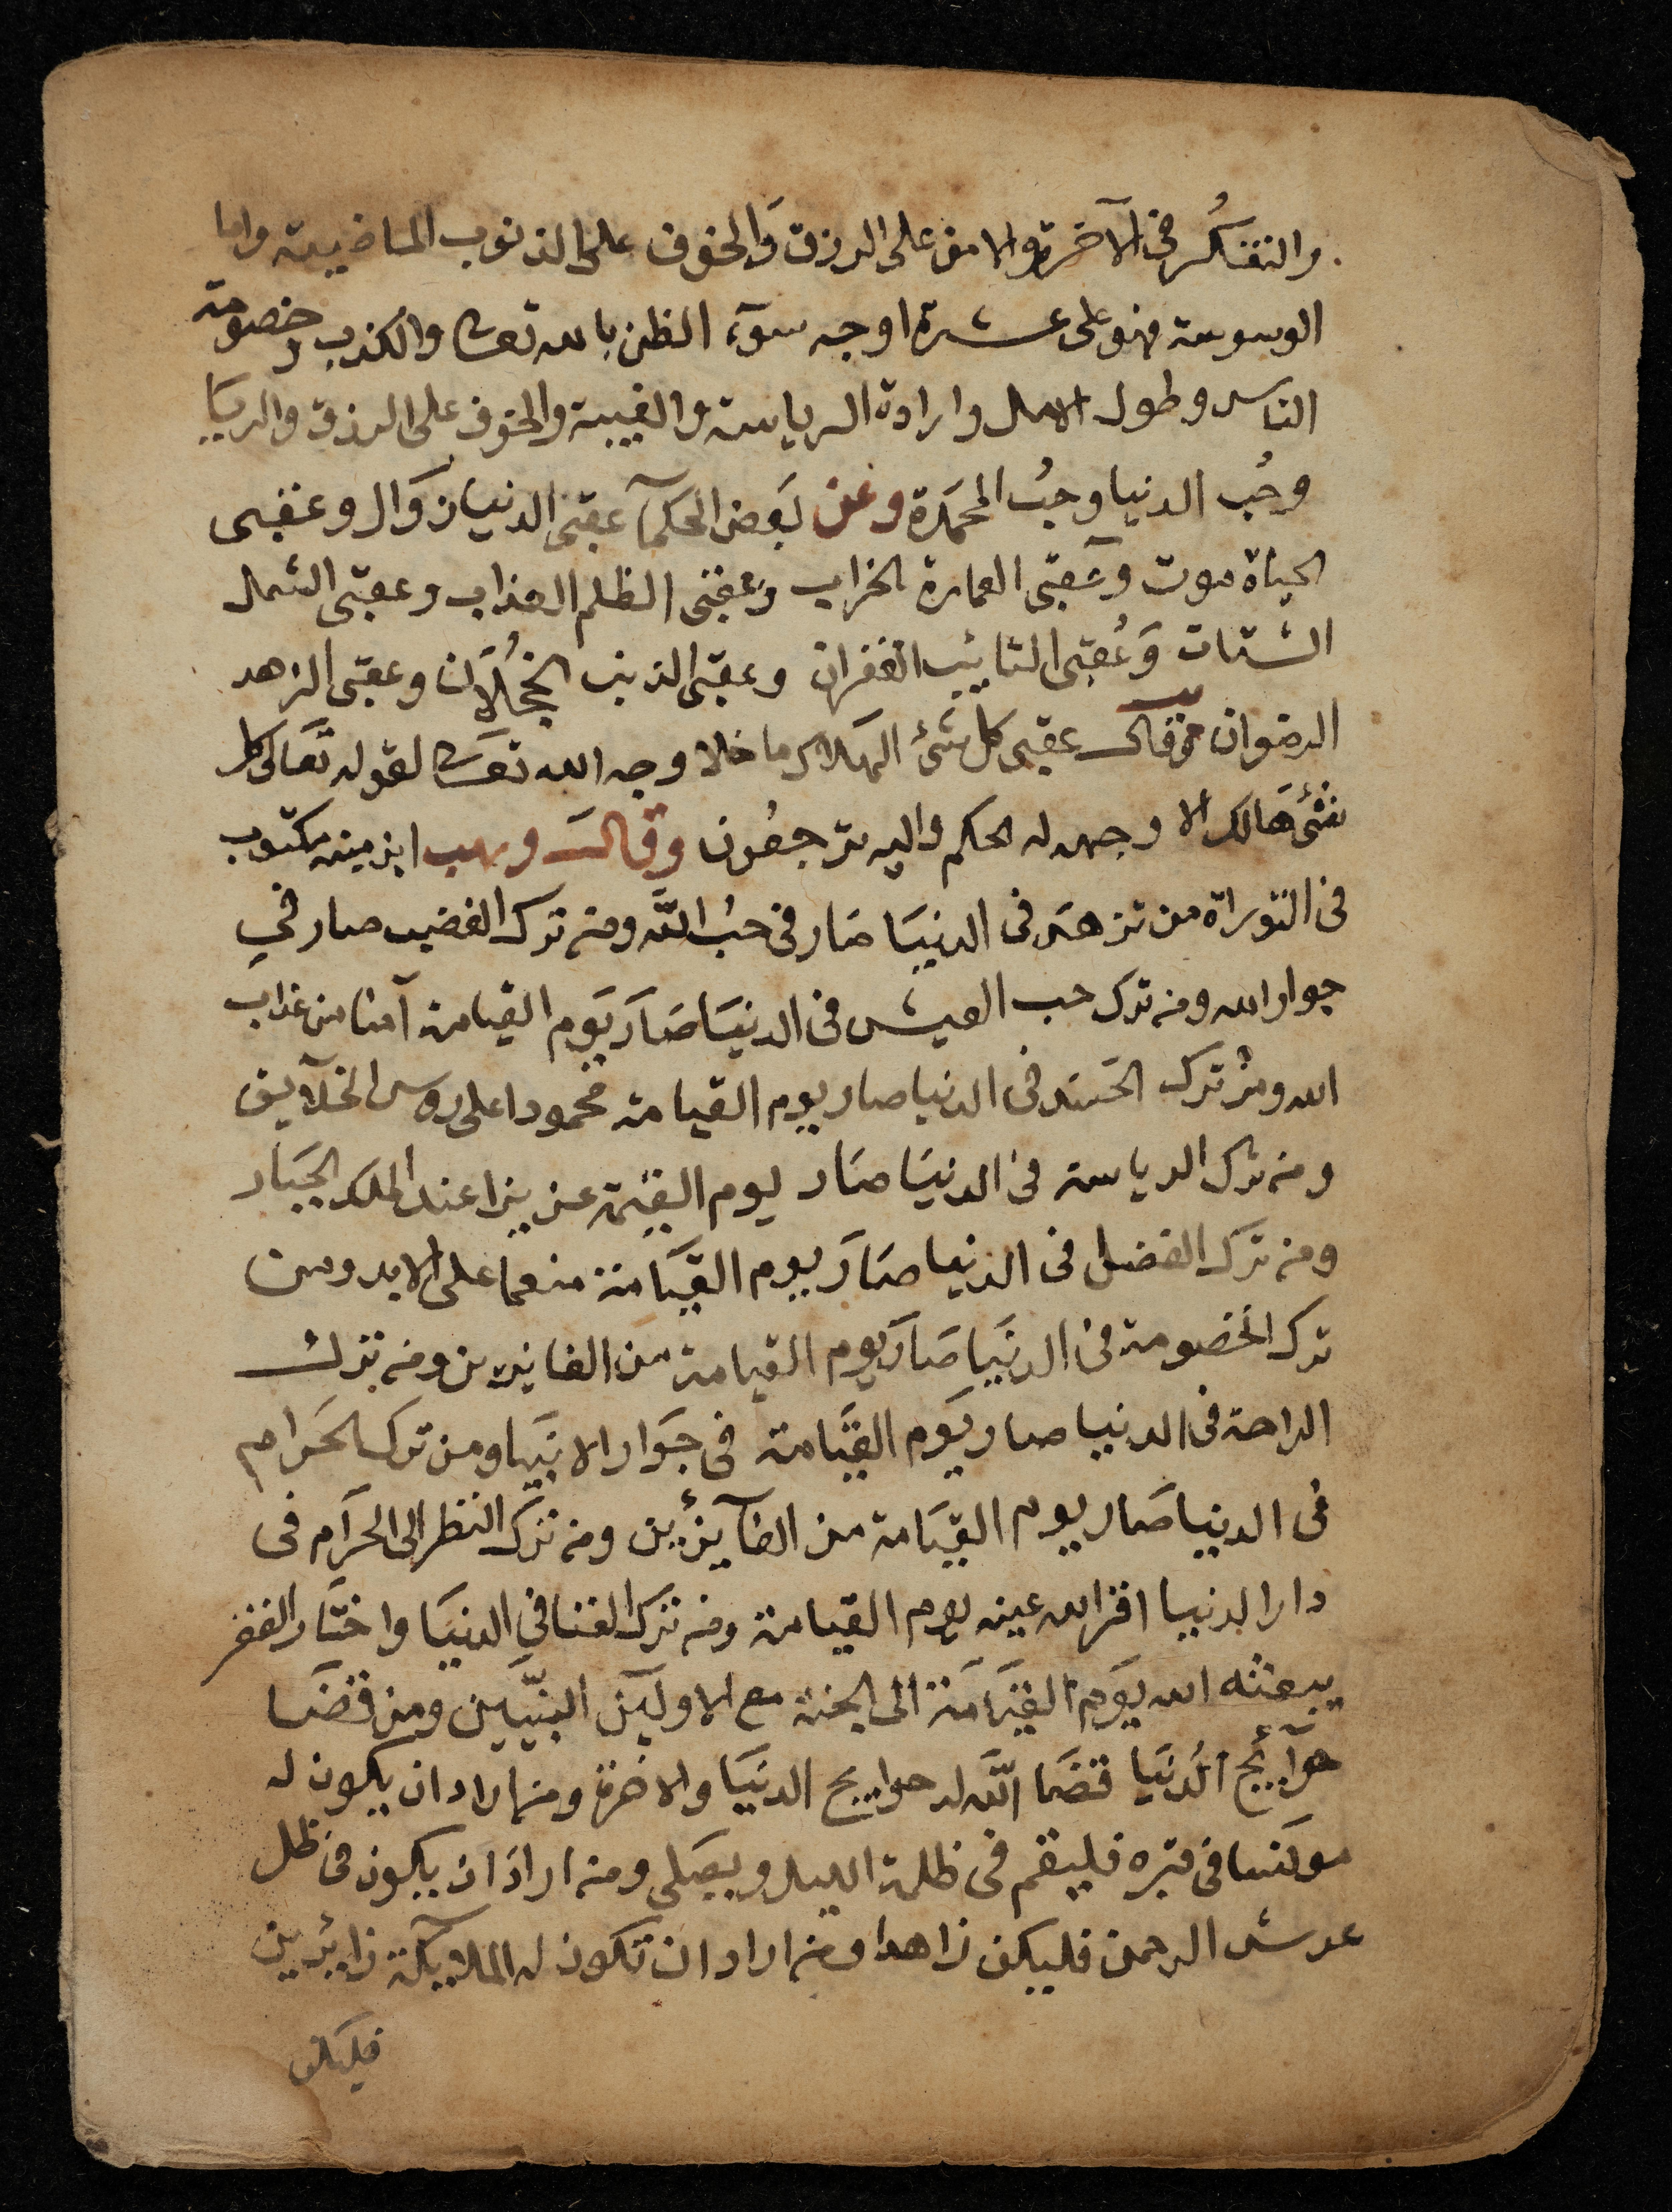 والتفكُر في الآخرة والامن على الرزق وَالخوف على الذنوب الماضية واما
الوسوسة فهو على عشرة اوجه سوٓء الظن بالله تعالى والكذب وخصومة
الناس وطول الامل وارادة الرياسة والغيبة والخوف على الرزق والريَا
وحُب الدنيا وحبُ المحمَدة وعن بَعض الحكمآ عقبى الدنيا زوَال وعقبى
الحياة موت وعَقبى العمارة الخراب وعقبى الظلم العذاب وعقبى الشمل
الشتات وَعُقبى التايب الغفران وعقبى الذنب الخجُلَان وعقبى الزهد
الرضوان وقال عقبى كل شئ الهلاك ما خلا وجه الله تعالى لقوله تعَالى كل
شئ هَالك الا وجهه له الحكم واليه ترجعُون وقال وهب ابن منبه مكتوب
في التوراة من تزهد في الدنيَا صَار في حبُ اللَّه ومن ترك الغضب صار في
جوار الله ومن ترك حب العيش في الدنيَا صَارَ يَوم القيامة آمنا من عذاب
الله ومن ترك الحَسَد في الدنيا صار يوم القيامة محمودا على روس الخلآيق
ومن ترك الرياسة في الدنيَا صَار يوم القيٰمة عزيزا عند الملك الجبَار
ومن ترك الفضل في الدنيا صَارَ يوم القيَامة منعما على الابد ومن
ترك الخصومة في الدنيَا صَارَ يوم القيامة من الفايزين ومن ترك
الراحة في الدنيا صار يَوم القيَامة في جَوار الانبيَا ومن ترك الحَرام
في الدنيا صَار يوم القيَامة من الفآيزين ومن ترك النظر الى الحرَام في
دار الدنيا اقر الله عينه يوم القيامة ومن ترك الغنا في الدنيَا واختَار الفقر
يبعثه الله يَوم القيَامَة الى الجنة مع الاوليَن النبيّيَن ومن قضَا
حوآيج الُدنيَا قضَا اللَّه له حوايج الدنيَا والاخرة ومن اراد ان يكون له
مونسا في قبره فليقم في ظلمة الليل ويصَلي ومن ارادَ ان يكون في ظل
عرش الرحمن فليكن زاهدا ومن اراد ان تكون له الملايكة زائرين
فليكن